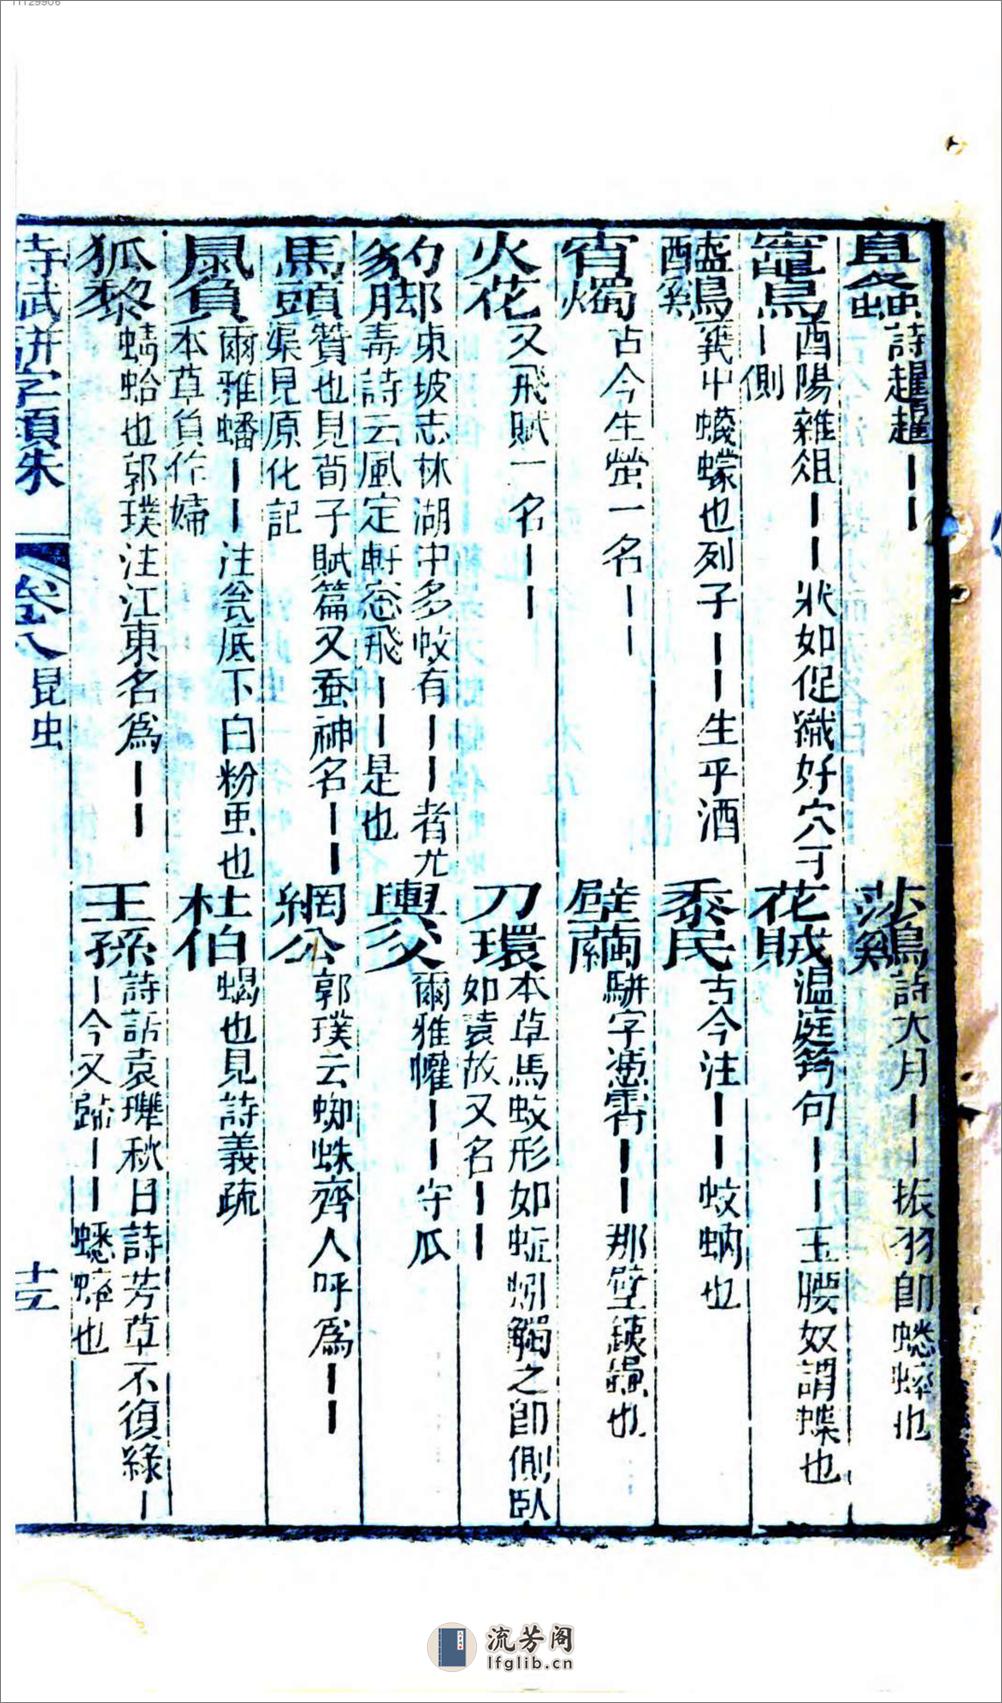 阜螽詩趯趯｜｜
莎鷄詩六月｜｜振羽卽蟋蟀也
竈馬酉陽雜俎｜｜狀如促織好穴于
｜側
花賊温庭筠句｜｜玉腰奴謂蝶也
醯鷄甕中蠛蠓也列子｜｜生乎酒
黍民古今注｜｜蚊蚋也
宵燭古今生螢一名｜｜
壁繭騈字憑霄｜｜那壁錢也
火花又飛賦一名｜｜
刀環本草馬蚊形如蚯蚓觸之卽側臥
如環故又名｜｜
豹脚東坡志林湖中多蚊有｜｜者尤
毒詩云風定軒窓飛｜｜是也
輿父爾雅蠸｜｜守瓜
馬頭贊也見荀子賦篇又蚕神名｜｜
娘見原化記
網公郭璞云蜘蛛齊人呼爲｜｜
鼠負爾雅蟠｜｜注瓮底下白粉虫也
本草負作婦
杜伯蝎也見詩義疏
狐黎蜻蛉也郭璞注江東名爲｜｜
王孫詩話袁瓘秋日詩芳草不復綠｜
｜今又歸｜｜蟋蟀也
詩賦騈字類珠
卷八
昆虫
十三
流芳阁
lfglib.cn